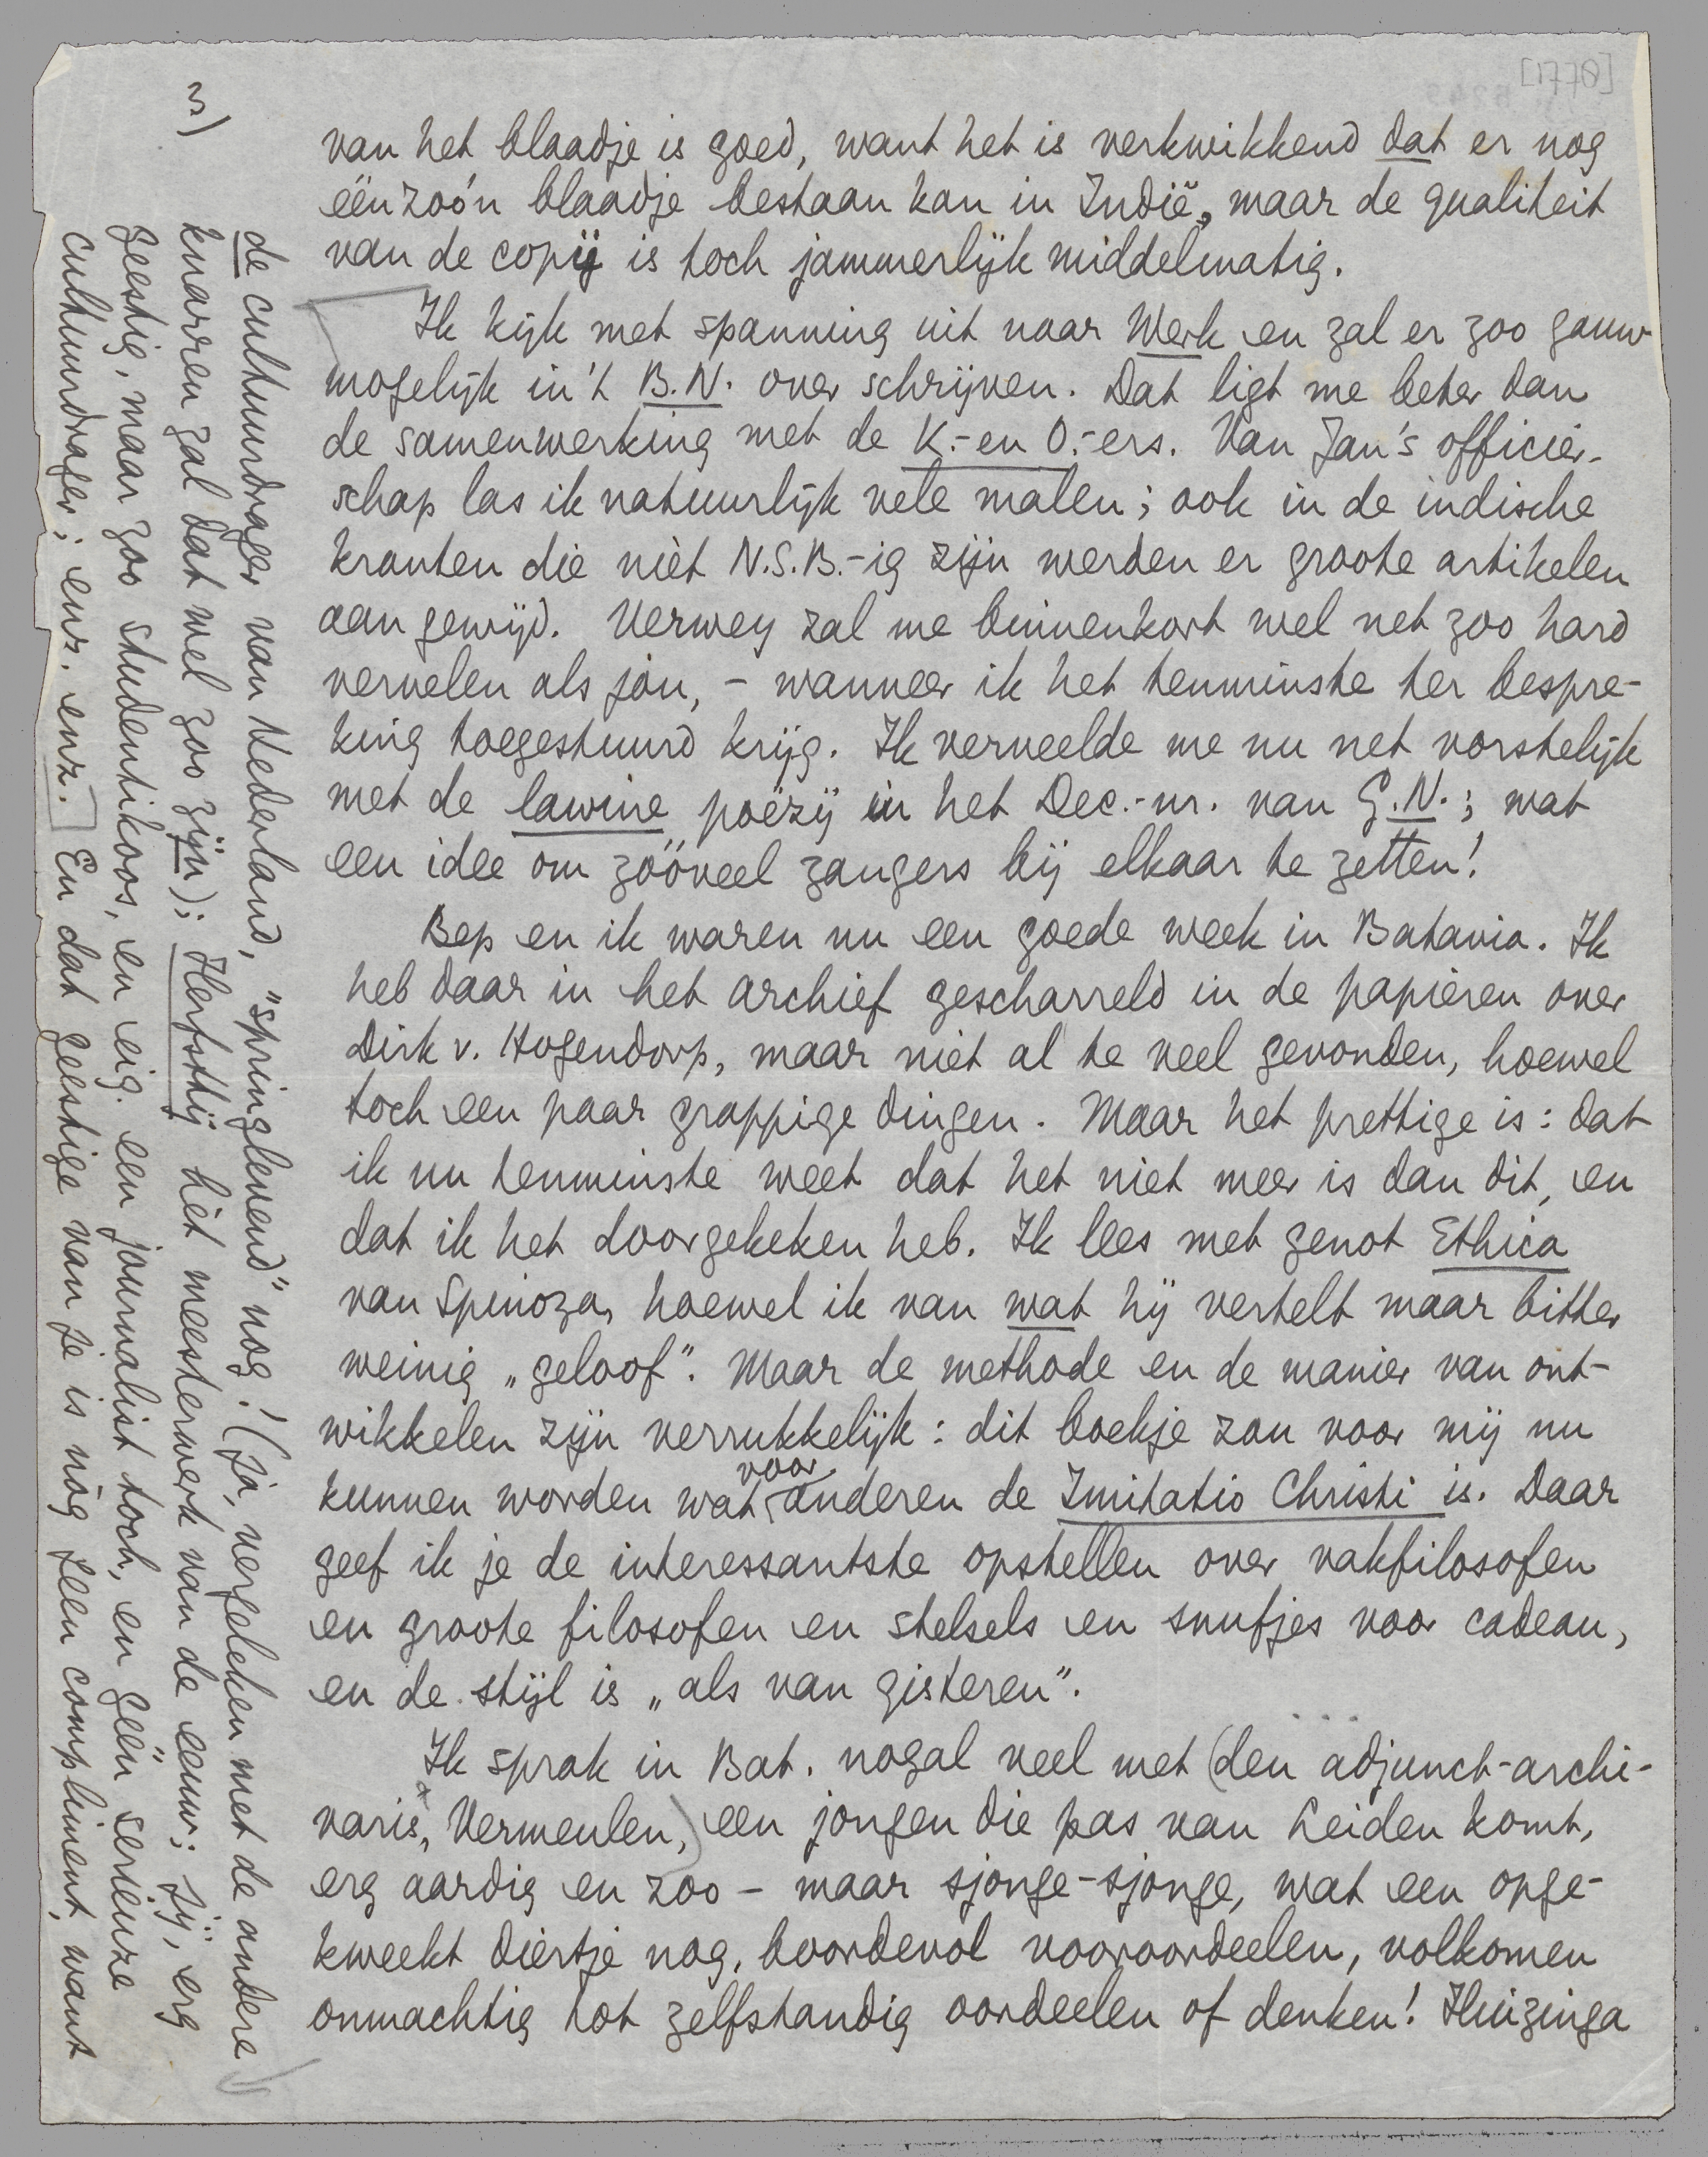 [1770]
3)
van het blaadje is goed, want het is verkwikkend dat er nog
één zoo'n blaadje bestaan kan in Indië, maar de qualiteit
van de copij is toch jammerlijk middelmatig.
Ik kijk met spanning uit naar Werk en zal er zoo gauw
mogelijk in 't B.N. over schrijven. Dat ligt me beter dan
de samenwerking met de K.- en O.-ers. Van Jan's officier-
schap las ik natuurlijk vele malen; ook in de indische
kranten die niet N.S.B.-ig zijn werden er groote artikelen
aan gewijd. Verwey zal me binnenkort wel net zoo hard
vervelen als jou, - wanneer ik het tenminste ter bespre-
king toegestuurd krijg. Ik verveelde me nu net vorstelijk
met de lawine poëzij in het Dec.-nr. van G.N.; wat
een idee om zóóveel zangers bij elkaar te zetten!
Bep en ik waren nu een goede week in Batavia. Ik
heb daar in het archief gescharreld in de papieren over
Dirk v. Hogendorp, maar niet al te veel gevonden, hoewel
toch een paar grappige dingen. Maar het prettige is: dat
ik nu tenminste weet dat het niet meer is dan dit, en
dat ik het doorgekeken heb. Ik lees met genot Ethica
van Spinoza, hoewel ik van wat hij vertelt maar bitter
weinig „geloof". Maar de methode en de manier van ont-
wikkelen zijn verrukkelijk: dit boekje zou voor mij nu
kunnen worden wat voor anderen de Imitatio Christi is. Daar
geef ik je de interessantste opstellen over vakfilosofen
en groote filosofen en stelsels en snufjes voor cadeau,
en de stijl is „als van gisteren".
Ik sprak in Bat. nogal veel met (den adjunct-archi-
varis, Vermeulen,) een jongen die pas van Leiden komt,
erg aardig en zoo - maar sjonge-sjonge, wat een opge-
kweekt diertje nog, boordevol vooroordeelen, volkomen
onmachtig tot zelfstandig oordeelen of denken! Huizinga
de cultuurdrager van Nederland, "springlevend" nog! (Ja, vergeleken met de andere
knarren zal dat wel zoo zijn); Herfsttij hèt meesterwerk van de eeuw; jij, erg
geestig, maar zoo studentikoos, en eig. een journalist toch, en géén serieuze
cultuurdrager; enz. enz. En dat geestige van je is nòg geen compliment, want